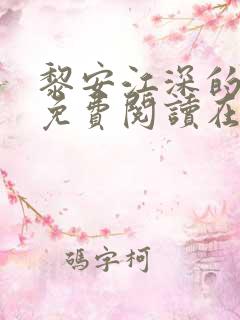 黎安江深的
免費閱讀在
碼字柯